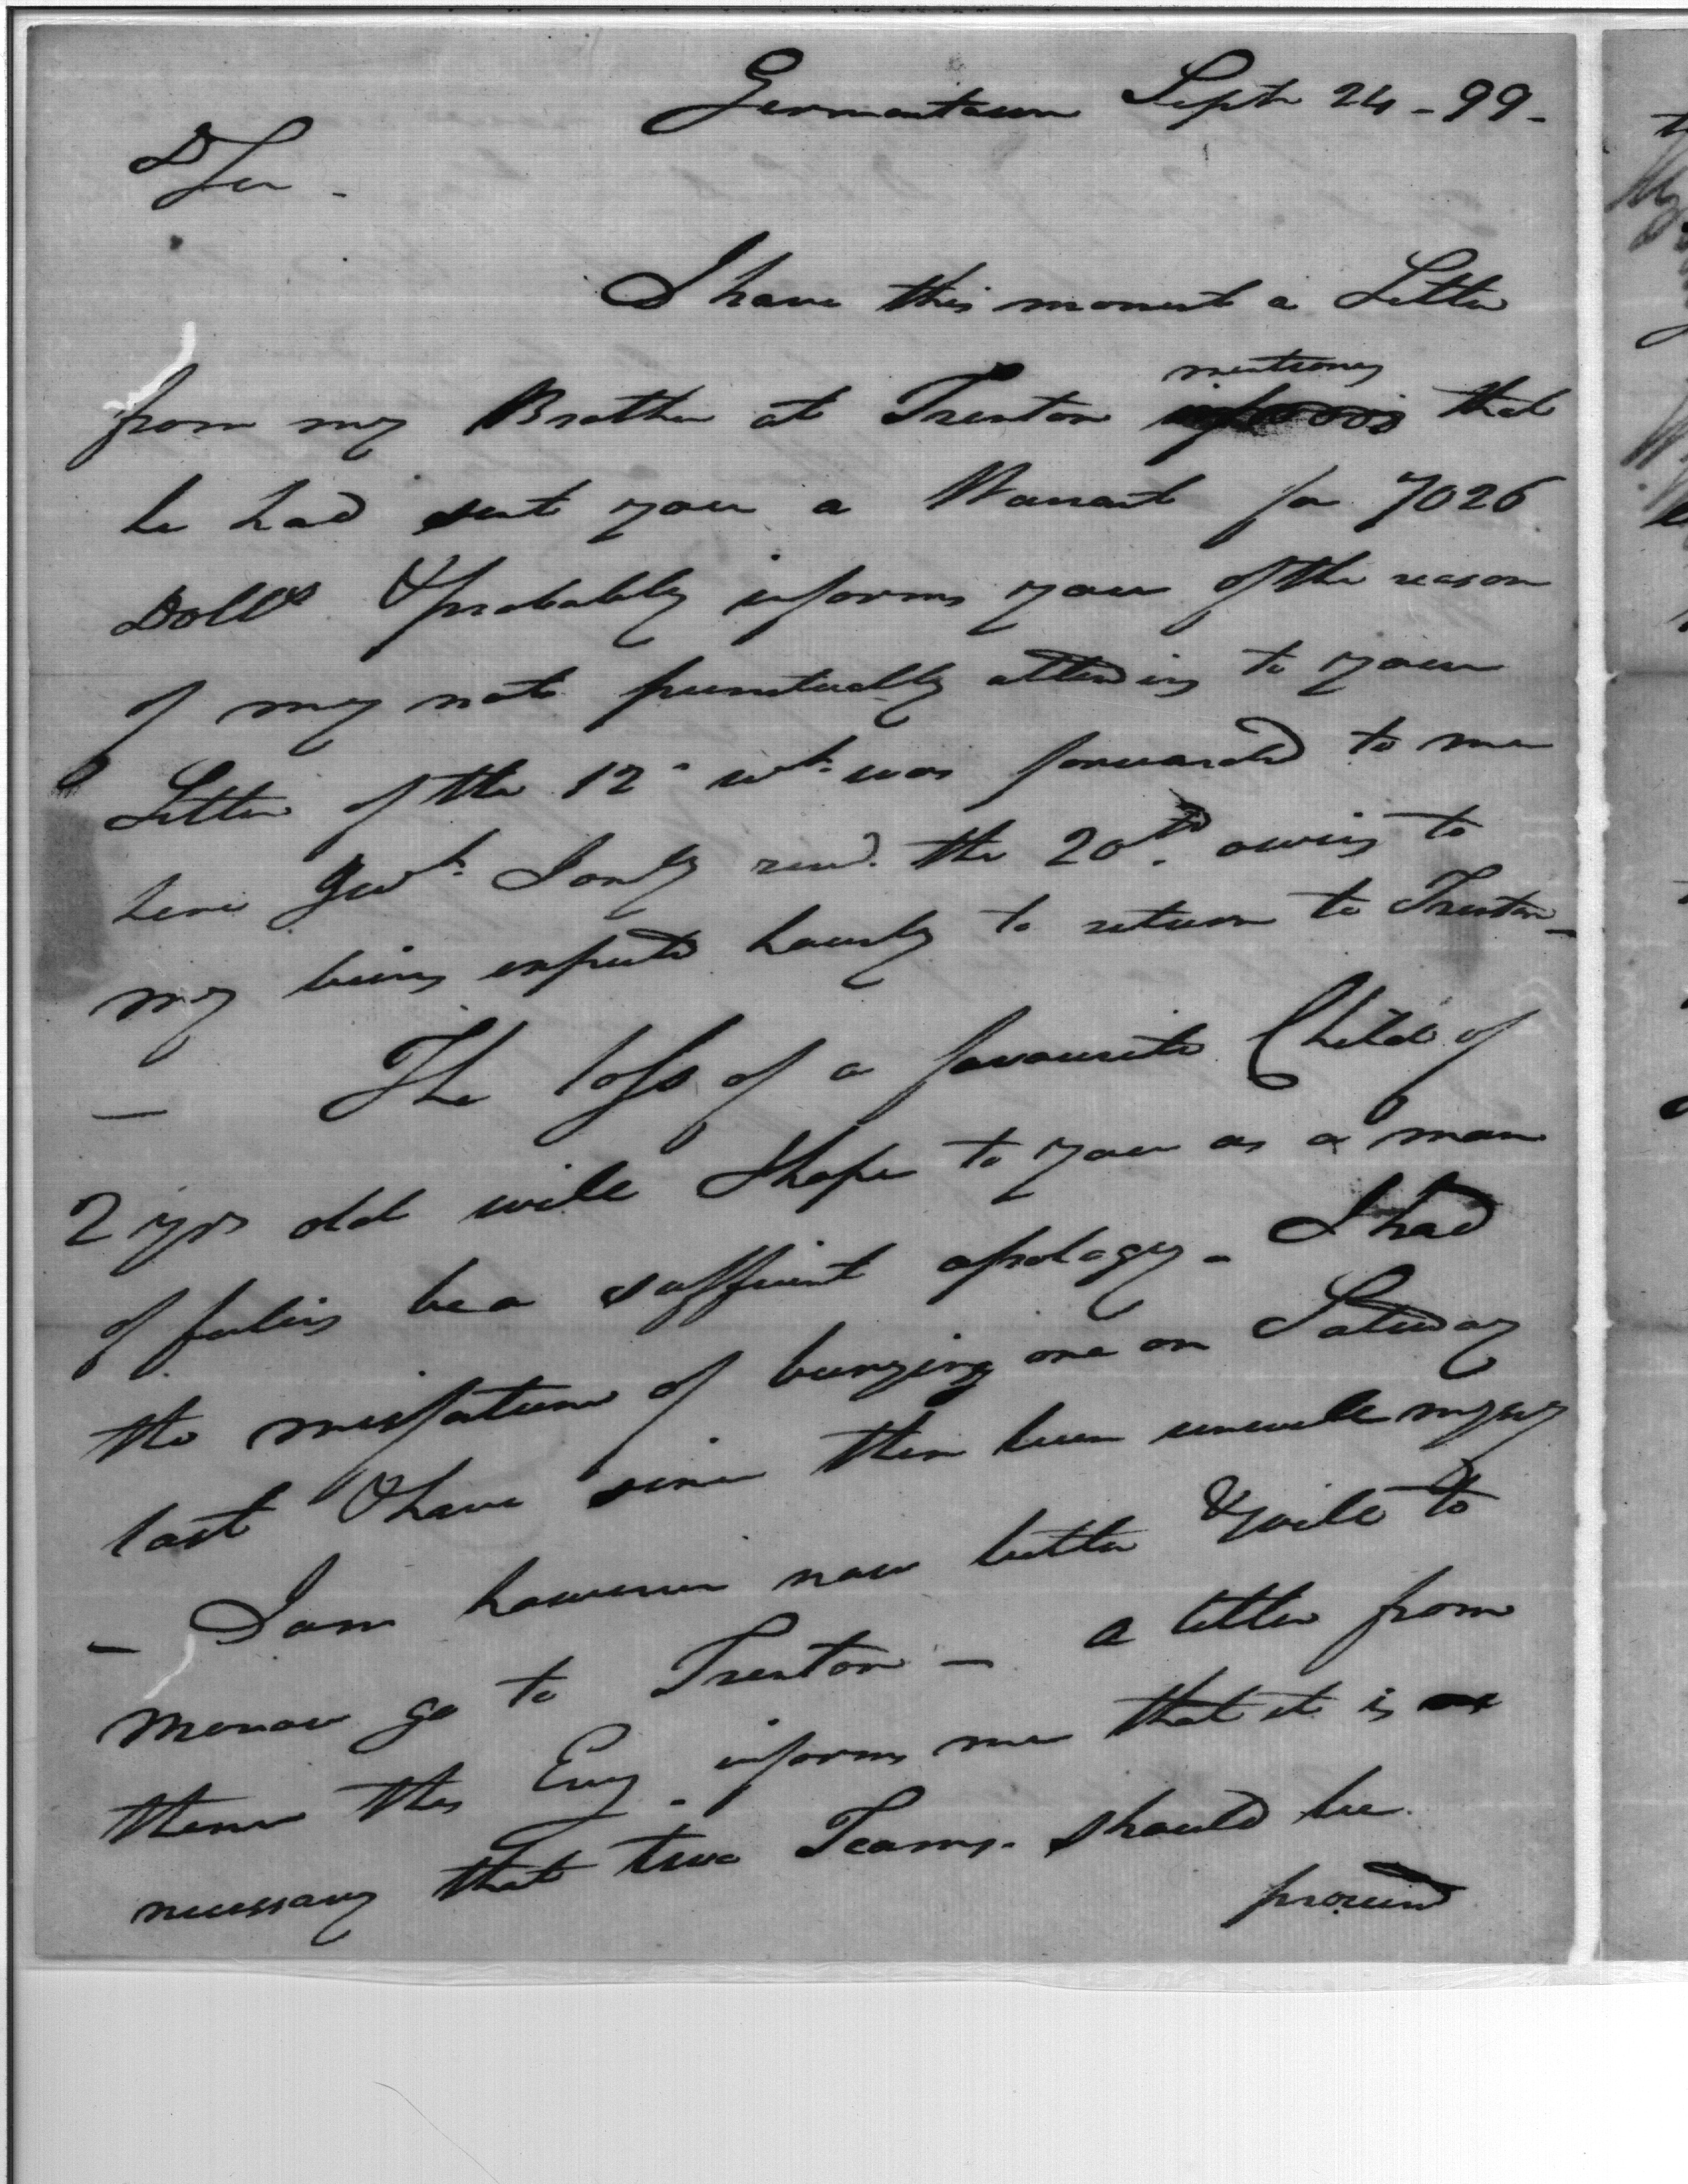 Germantown Sept 24 - 99 -
D Sir -
I have this moment a Letter
from my Brother at Trenton mentiong that
he had sent you a Warrant for 7026
Dolls & probably informs you of the reason
of my not punctually attending to your
Letter of the 12th wh. was forwarded to me
here & wh. I only recd. the 20th owing to
my being expected hourly to return to Trenton -
- The loss of a favourite Child of
2 yrs old will I hope to you as a man
of feeling be a sufficient apology - I had
the misfortune of burying one on Saturday
last & have since then been unwell myself
- I am however now better & will to
morrow go to Trenton - a letter from
thence this Eveg. informs me that it is
necessary that two Teams should be
procured